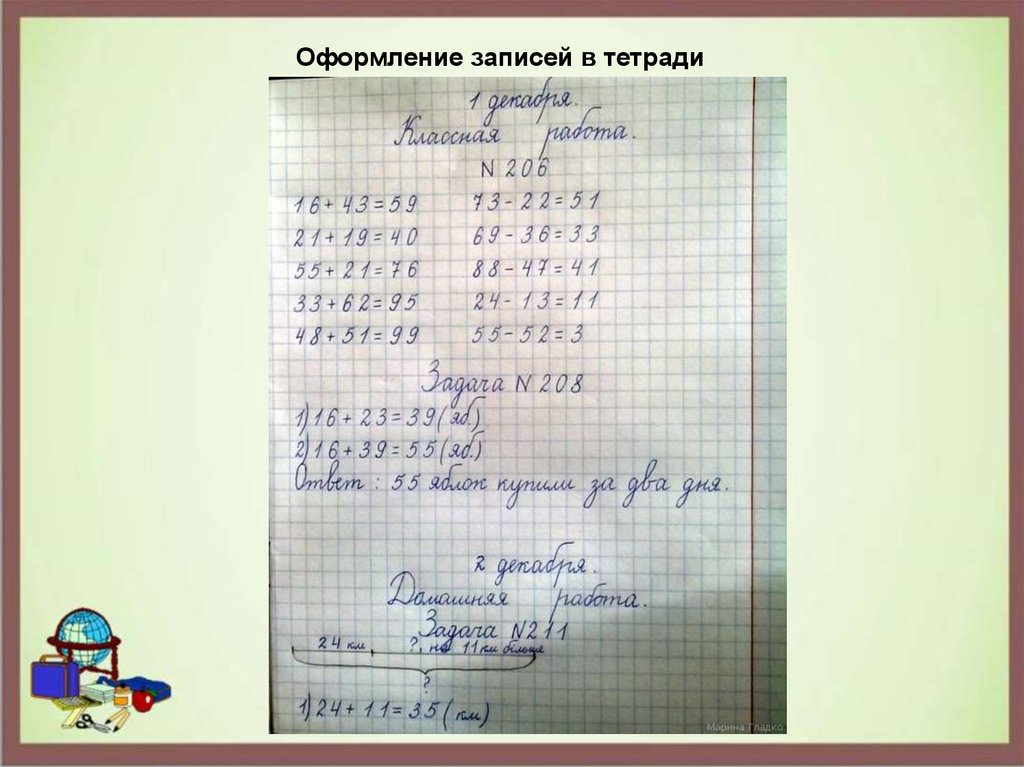 Оформление записей в тетради
1 декабря.
Классная работа.
N 206
16+43=59 73-22=51
21+19=40 69-36=33
55+21=76 88-47=41
33+62=95 24-13=11
48+51=99 55-52=3
Задача N 208
1) 16+23=39 (яб.)
2) 16+39=55 (яб.)
Ответ: 55 яблок купили за два дня.
2 декабря.
Домашняя работа.
Задача N 211
24 км ?, на 11 км больше
?
1) 24+11=35 (км)
Марина Гладко